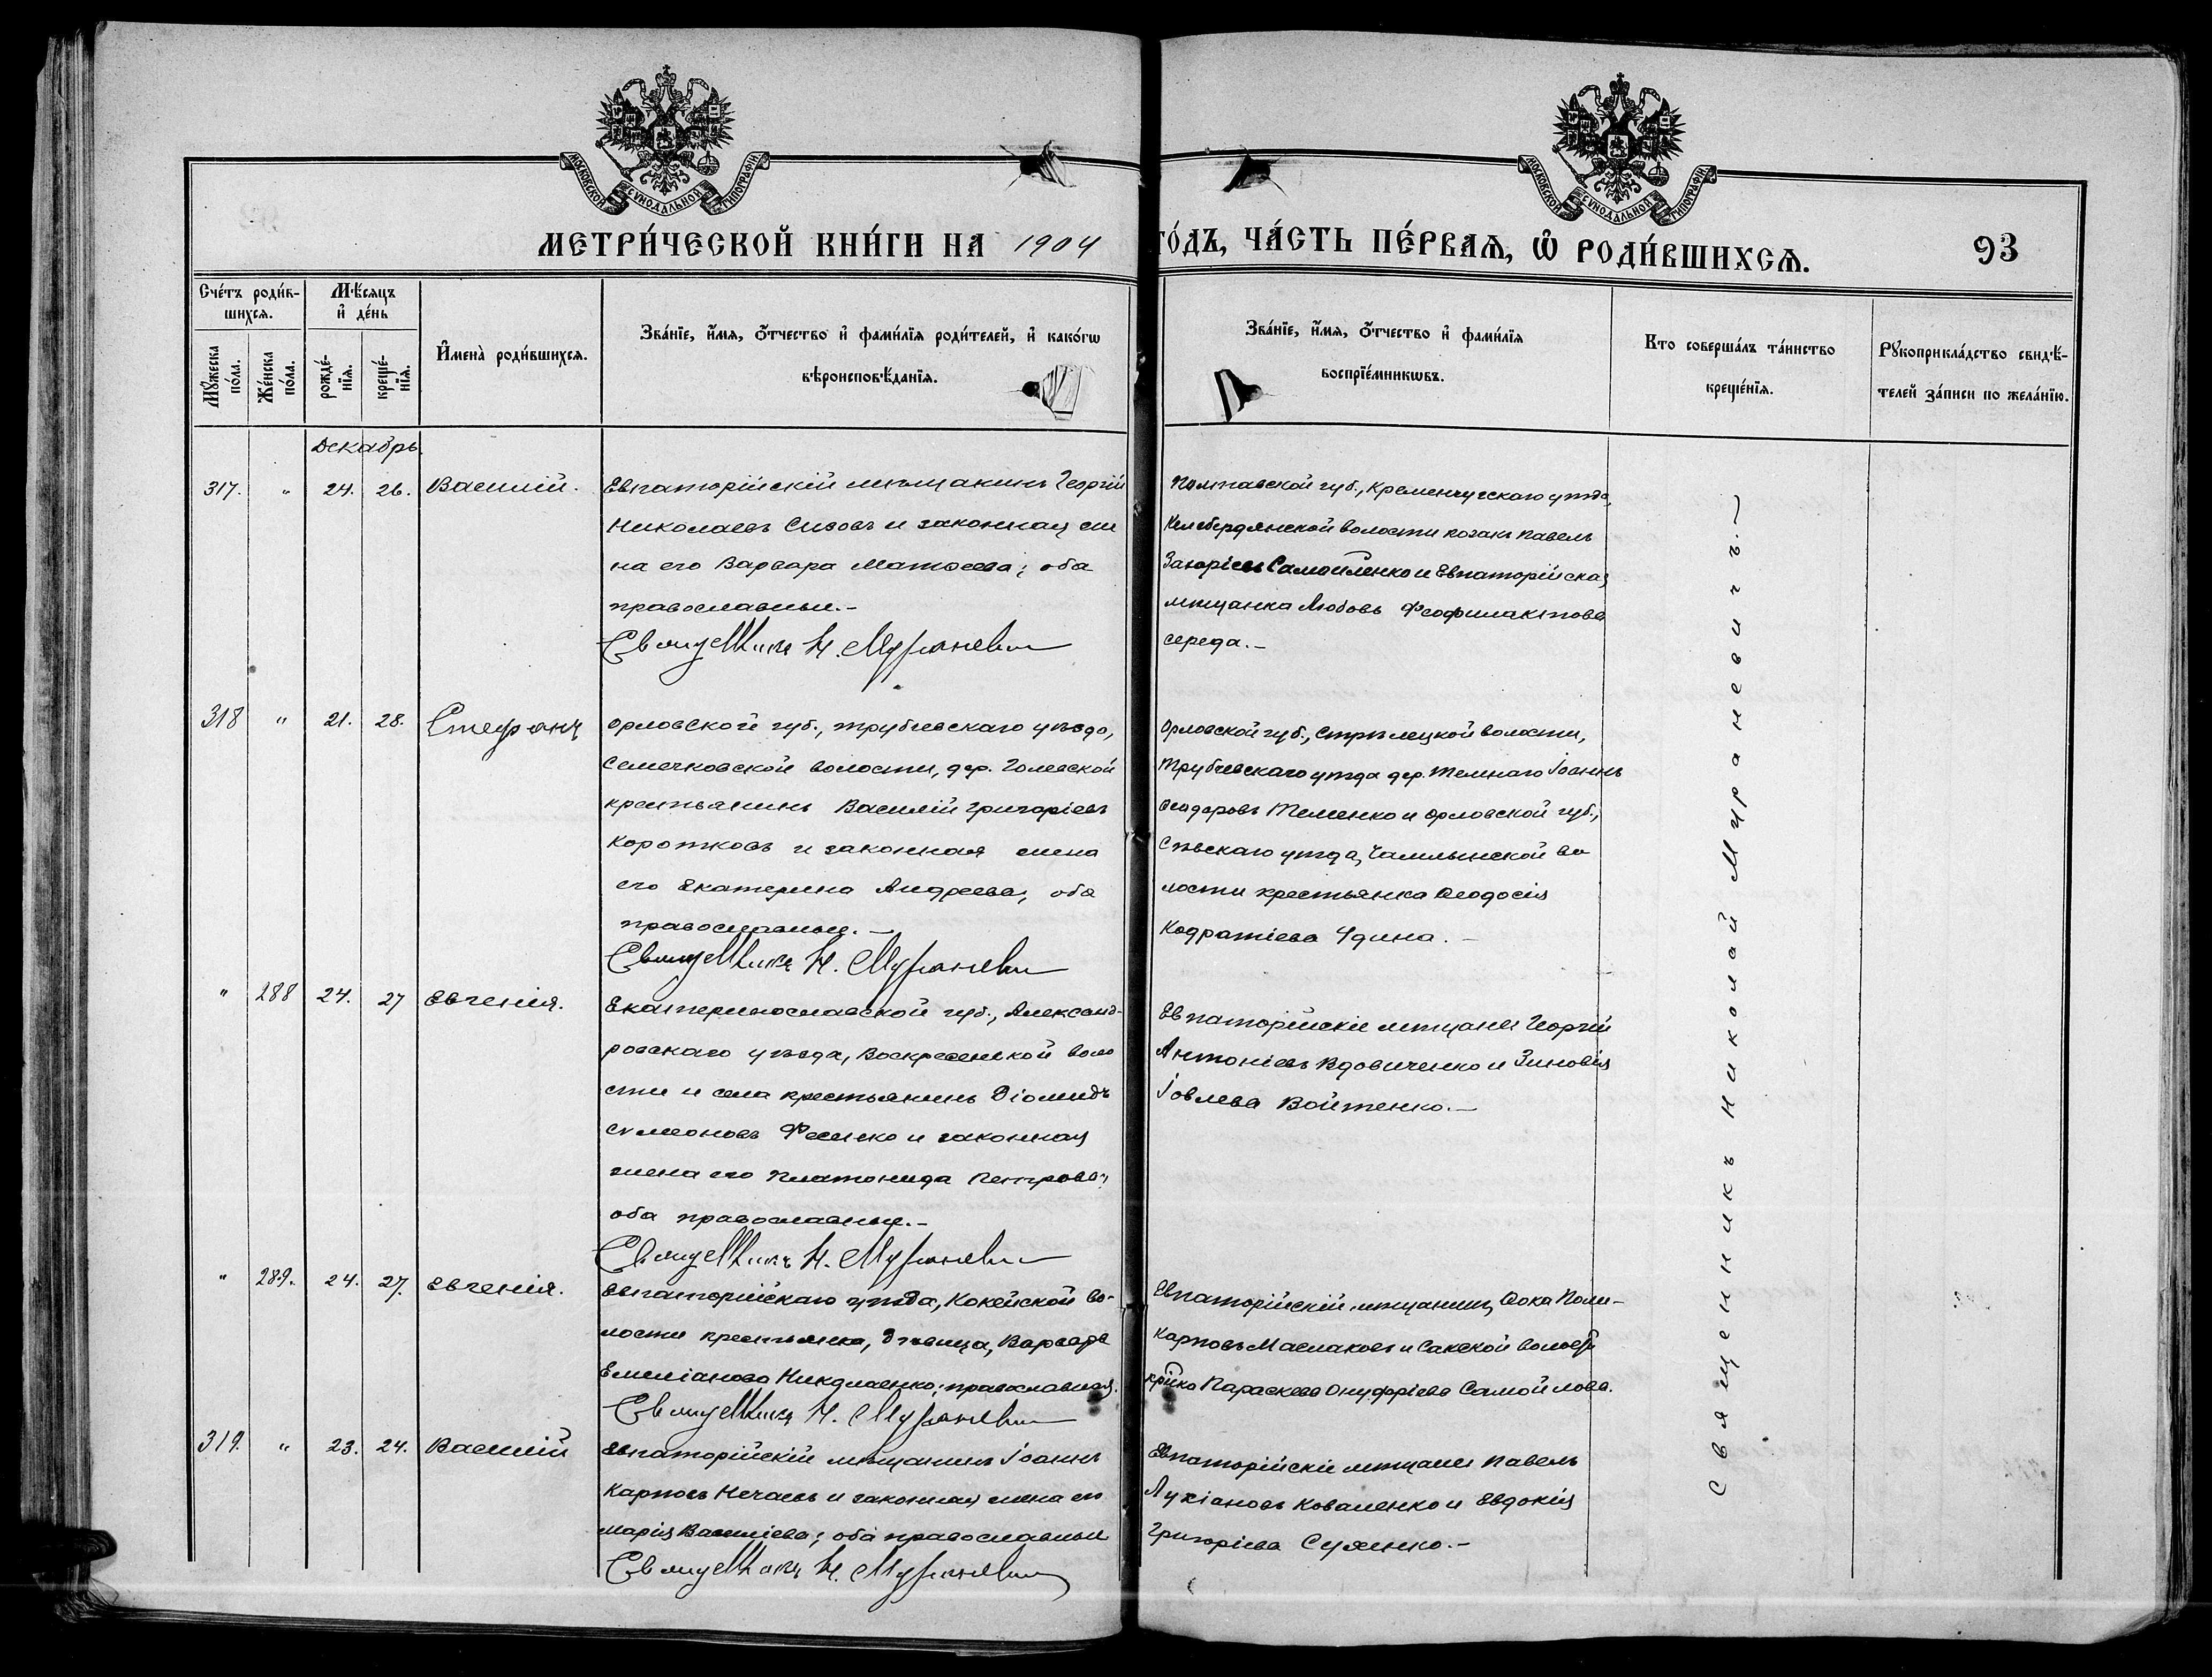 МОСКОВСКОЙ СѴНОДАЛЬНОЙ ТИПОГРАФІИ
МОСКОВСКОЙ СѴНОДАЛЬНОЙ ТИПОГРАФІИ
МЕТРИ́ЧЕСКОЙ КНИ́ГИ НА 1904 ГО́ДЪ, ЧА́СТЬ ПЕ́РВАѦ, Ѽ РОДИ́ВШИХСѦ.
93
Сче́тъ роди́вшихсѧ.
Мꙋжеска по́ла.
Же́нска по́ла.
Мѣ́сѧцъ и҆ де́нь
рожде́нїѧ.
креще́нїѧ.
И҆мена̀ роди́вшихсѧ.
Зва́нїе, и҆́мѧ, ѻ҆́тчество и҆ фами́лїѧ роди́телей, и҆ како́гѡ
вѣроисповѣ́данїѧ.
Зва́нїе, и҆́мѧ, ѻ҆́тчество и҆ фами́лїѧ
воспрїе́мникѡвъ.
Кто соверша́лъ та́инство
креще́нїѧ.
Рꙋкоприкла́дство свидѣ́-
телей за́писи по жела́нїю.
Декабрь.
317. " 24. 26. Василій.
Евпаторійскій мѣщанинъ Георгій
Николаевъ Сизовъ и законная же
на его Варвара Матѳеева; оба
православные.-
Священникъ Н. Мураневич
Полтавской губ., Кременчугскаго уѣзда,
Келебердянской волости козакъ Павелъ
Захаріевъ Самойленко и Евпаторійская
мѣщанка Любовь Феофилактова
Середа.-
318 " 21. 28. Стефанъ
Орловской губ., Трубчевскаго уѣзда,
Семечковской волости, дер. Голевской
крестьянинъ Василій Григоріевъ
Коротковъ и законная жена
его Екатерина Андреева, оба
православные.-
Священникъ Н. Мураневич
Орловской губ., Стрѣлецкой волости,
Трубчевскаго уѣзда дер. Темнаго Іоаннъ
Ѳеодоровъ Теменко и Орловской губ.,
Сѣвскаго уѣзда, во
лости крестьянка Ѳеодосія
Кодратіева Юдина.-
" 288 24. 27 Евгенія.
Екатеринославской губ., Александ-
ровскаго уѣзда, Воскресенской воло
сти и села крестьянинъ Діомидъ
Сѵмеоновъ Фесенко и законная
жена его Платонида Петрова;
оба православные.-
Священникъ Н. Мураневич
Евпаторійскіе мѣщане Георгій
Антоніевъ Вдовиченко и Зиновія
Іовлева Войтенко.-
" 289. 24. 27. Евгенія.
Евпаторійскаго уѣзда, Кокейской во-
лости крестьянка, дѣвица, Варвара
Емиліанова Николаенко; православная.
Священникъ Н. Мураневич
Евпаторійскій мѣщанинъ Ѳока Поли-
карповъ Маслаковъ и Сакской волости
кр-ка Параскева Онуфріева Самойлова.
319. " 23. 24. Василій
Евпаторійскій мѣщанинъ Іоаннъ
Карповъ Нечаевъ и законная жена его
Марія Василіева; оба православные
Священникъ Н. Мураневич
Евпаторійскіе мѣщане Павелъ
Лукіановъ Коваленко и Евдокія
Григоріева Суженко.-
Священникъ Николай Мураневичъ.-